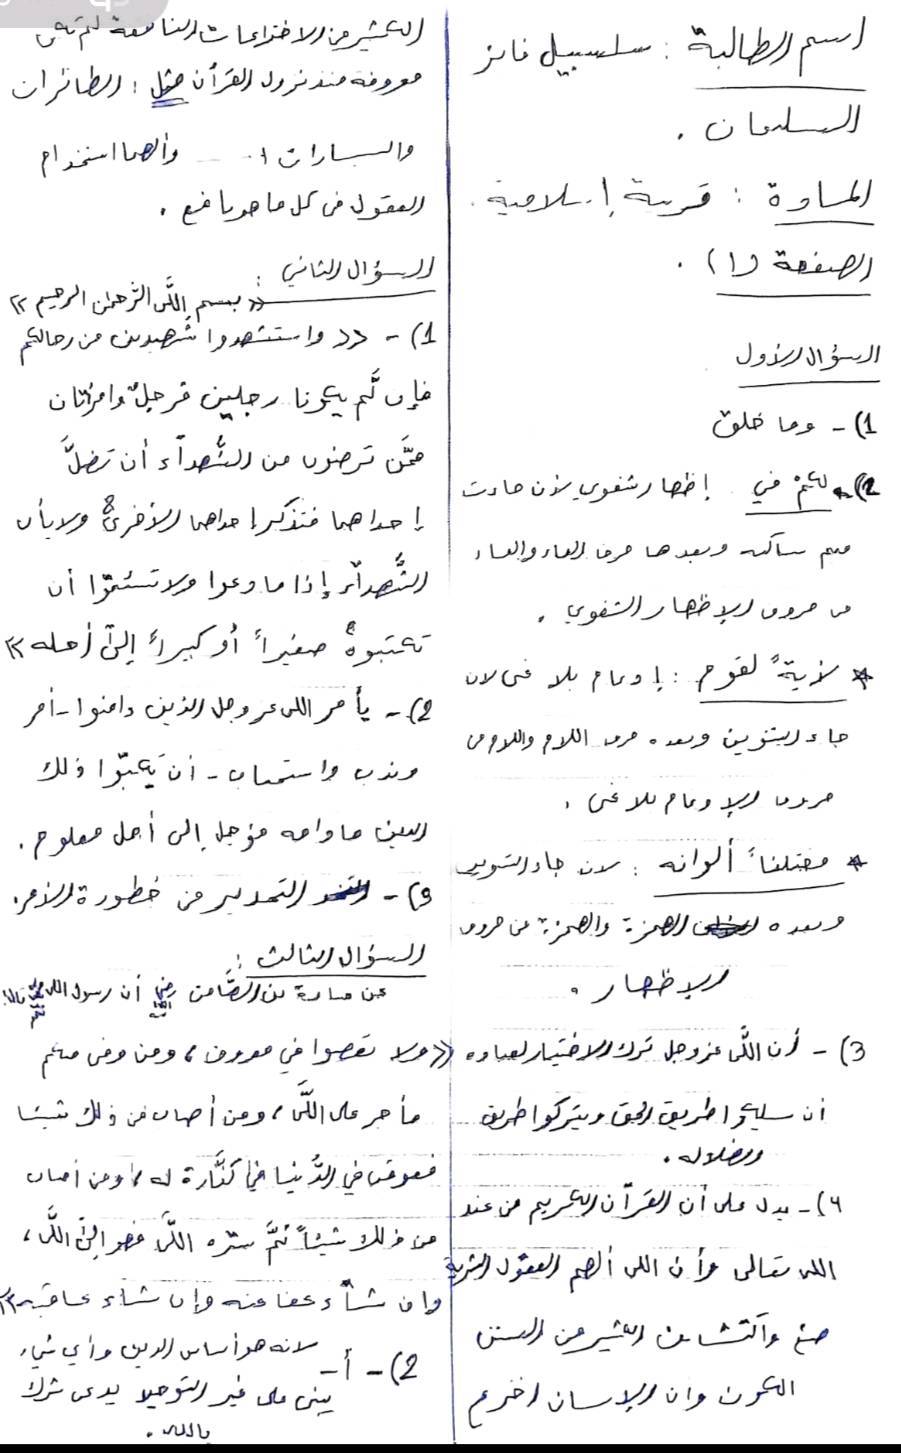 اسم الطالبة : سلسبيل فائز
السلمان .
المادة : تربية إسلامية .
الصفحة (١) .
السؤال الأول
1) - وما خلق
2) - لكم في إظهار شفوي لأن جاءت
ميم ساكنة وبعدها حرف الفاء والفاء
من حروف الإظهار الشفوي .
* لآيةً لقوم : إدغام بلا غنى لان
جاء التنوين وبعده حرف اللام واللام من
حروف الإدغام بلا غنى .
* مختلفاً ألوانه : لان جاء التنوين
وبعده الهمزة والهمزة من حروف
الإظهار .
3) - أن اللّٰه عزوجل ترك الاختيار لعباده
أن يسلكوا طريق الحق ويتركوا طريق
الضلاله .
4) - يدل على أن القرآن الكريم من عند
الله تعالى وأن الله ألهم العقول البشرية
صنع واكتشاف الكثير من السنن
الكون وان الإنسان اخترع
الكثير من الاختراعات النافعة لم تكن
معروفه منذ نزول القرآن مثل : الطائرات
والسيارات ... وألهما استخدام
العقول في كل ما هو نافع .
السؤال الثاني :
« بسم اللّٰه الرحمن الرحيم »
1) - << واستشهدوا شهيدين من رجالكم
فإن لَّم يكونا رجلين فرجلٌ وامرأتان
ممَّن ترضون من الشُّهدآء أن تضلَّ
إحداهما فتذكر إحداهما الأخرىٰ ولا يأب
الشُّهدآء إذا ما دعوا ولا تسئموٓا أن
تكتبوهُ صغيراً أو كبيراً إلىٰٓ أجله >>
2) - يأمر الله عز وجل الذين ءامنوا - أمر
وندب واستحباب - أن يكتبوا ذلك
الدين مادامه مؤجل إلى أجل معلوم .
3) - التحذير من خطورة الأمر.
السؤال الثالث :
عن عبادة بن الصَّامت رضي الله عنه أن رسول الله قال:
« ولا تعصوا في معروف ، ومن وفى منكم
فأجر على اللّٰه ، ومن أصاب من ذلك شيئا
فعوقب في الدُّنيا فهو كفَّارة له ، ومن أصاب
من ذلك شيئاً ثمَّ ستره اللّٰه فهو إلى اللّٰه ،
وان شآء عفا عنه وإن شاء عاقبه »
2) - أ - لانه هو أساس الدين وأي شيء
يبنى على غير التوحيد يدعى شرك
بالله .